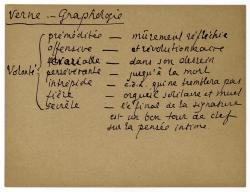 Verne — Graphologie
préméditée — mûrement réfléchie
offensive — et révolutionnaire
— dans son dessein
Volonté persévérante — jusqu'à la mort
intrépide — c.à.d. qui ne tremblera pas
fière — orgueil solitaire et muet
secrète — le final de la signature
est un bon tour de clef
sur la pensée intime.